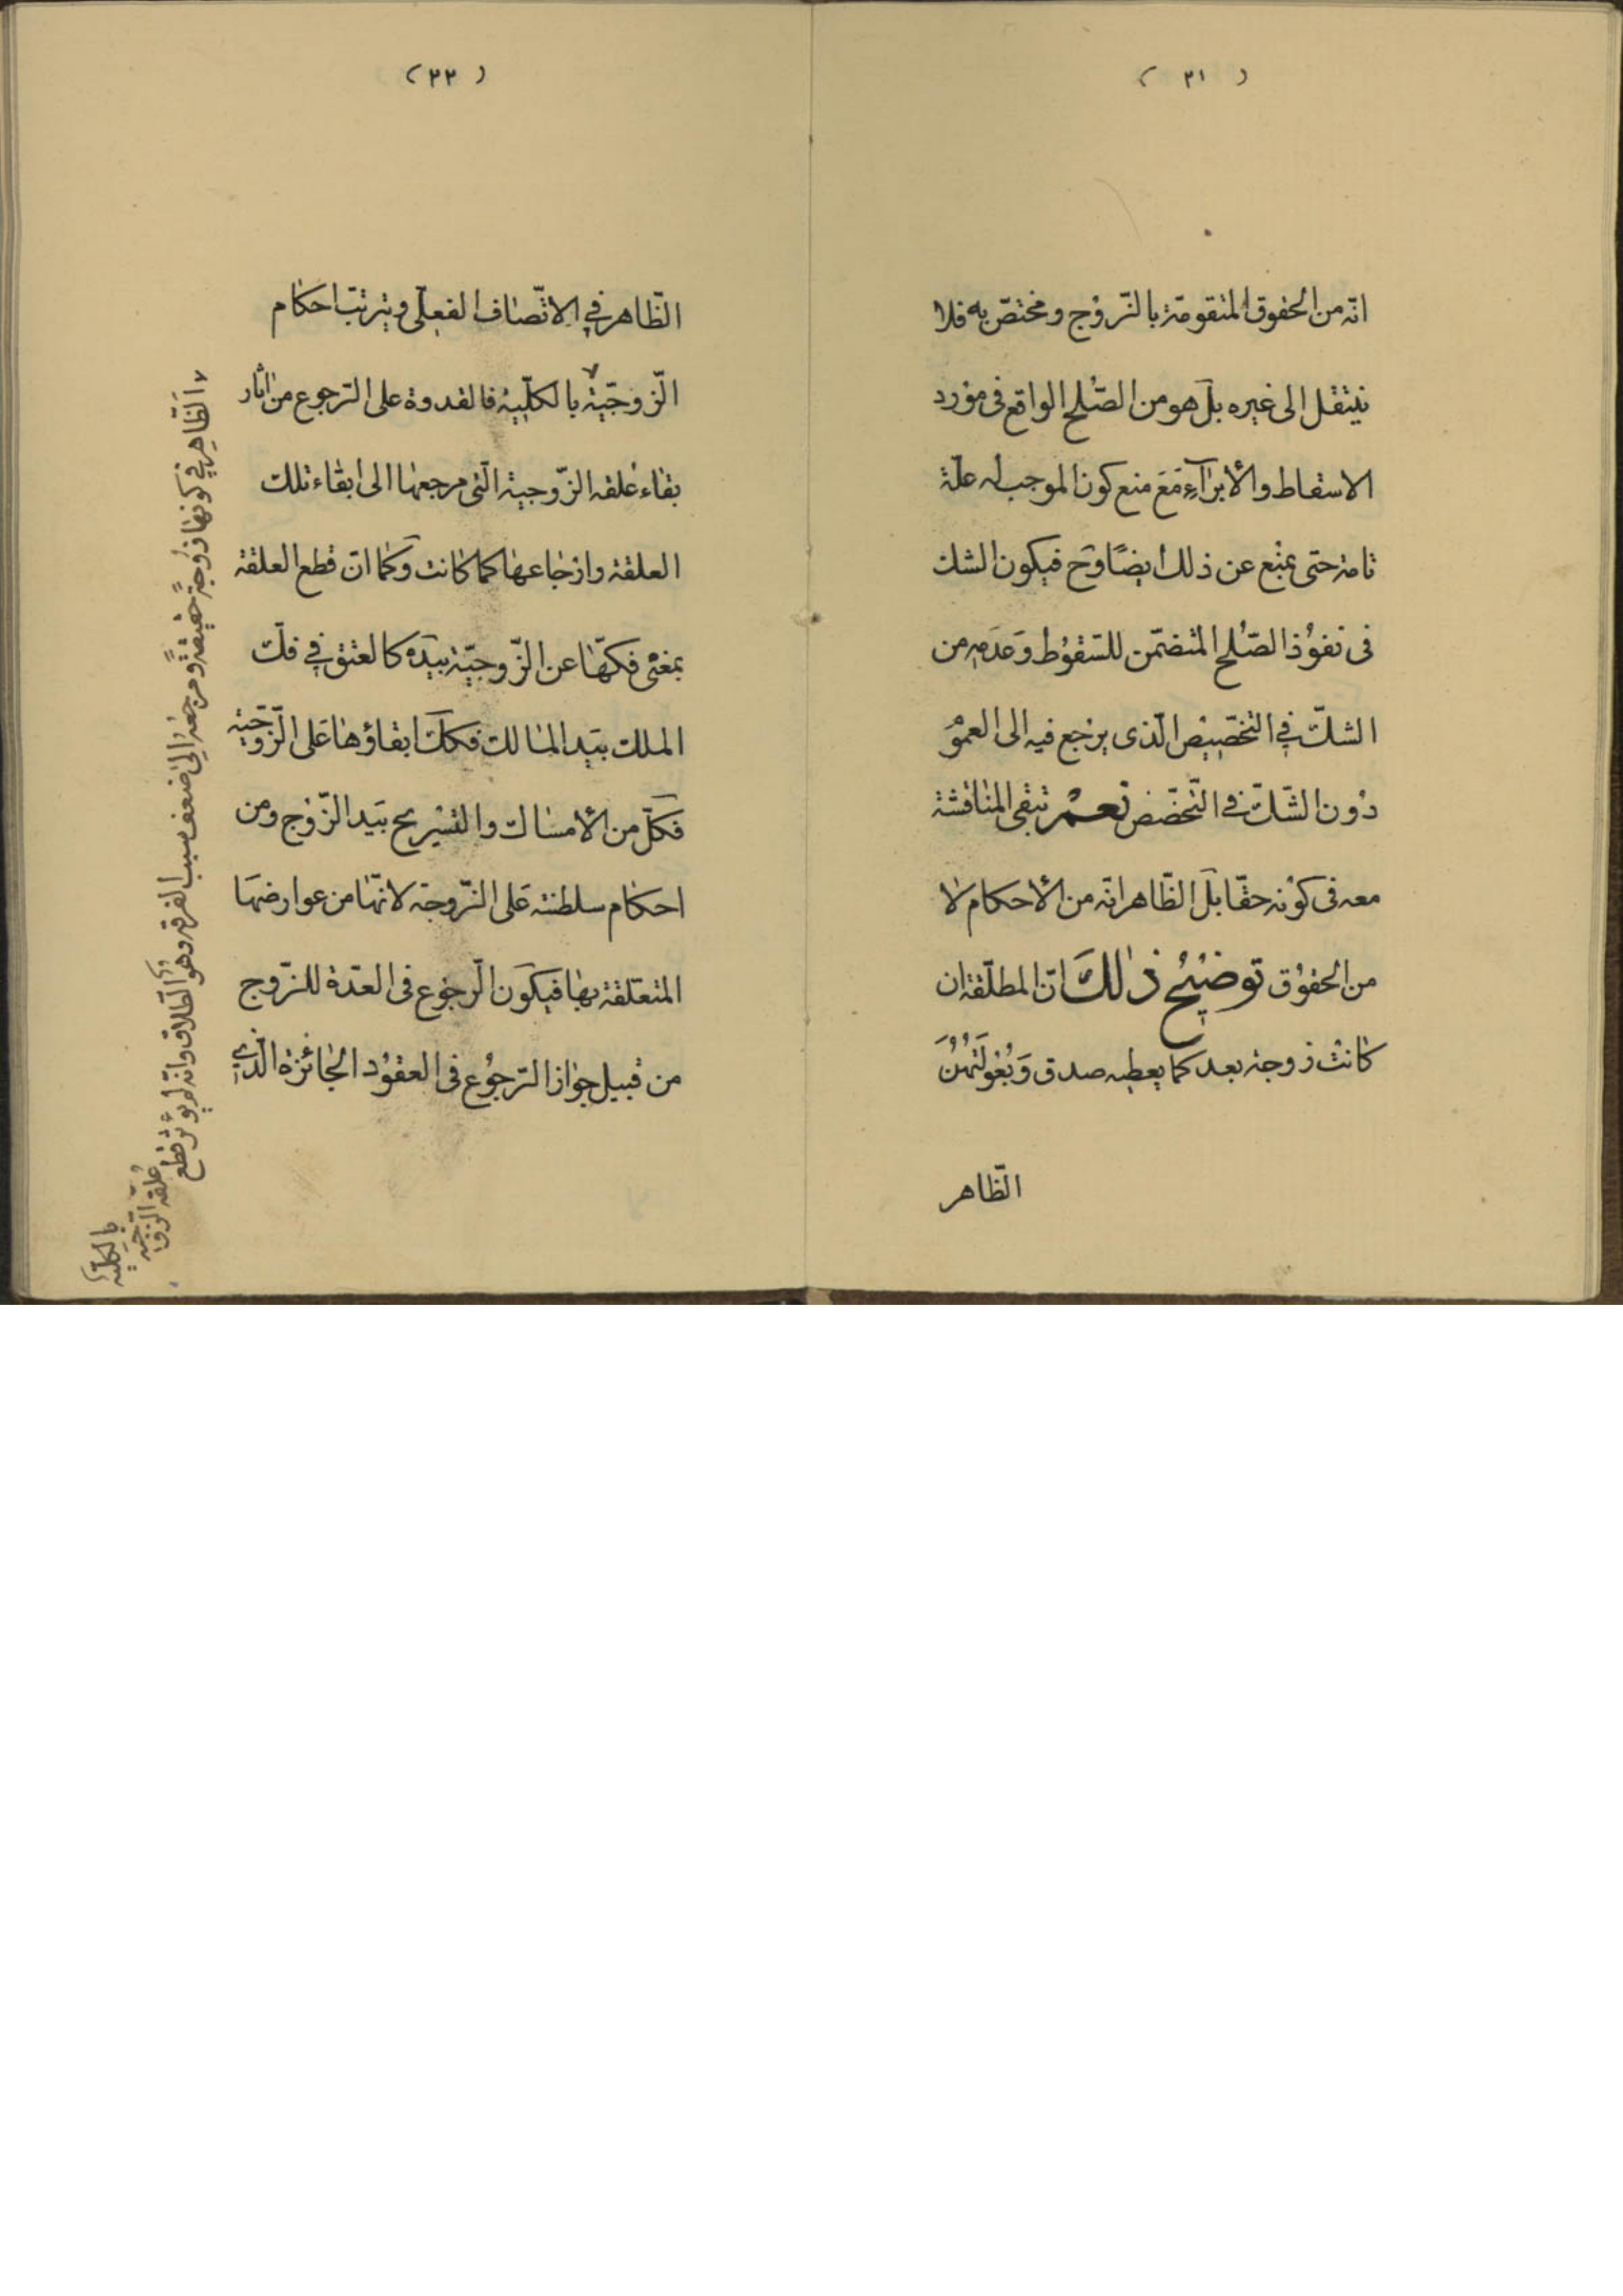 ( ٣١ )
انّه من الحقوق المتقومة بالزّوج ومختصّ به فلا
ينتقل الى غيره بل هو من الصّلح الواقع فى مورد
الاسقاط والأبراء مع منع كون الموجب له علّة
تامة حتى يمنع عن ذلك ايضًا وح فيكون الشك
فى نفوذ الصّلح المتضمّن للسّقوط وعدمه من
الشكّ في التخصيص الّذى يرجع فيه الى العموم
دون الشّكّ في التّخصّص نعم تبقى المناقشة
معه فى كونه حقّا بل الظّاهر انّه من الأحكام لا
من الحقوق توضيح ذلك انّ المطلّقة ان
كانت زوجة بعد كما يعطيه صدق وَبُعُولَتُهُنَّ
الظّاهر
( ٣٣ )
الظّاهر في الاتّصاف الفعلى وترتّب احكام
الزّوجيّة بالكلّية فالقدرة على الرّجوع من اثار
بقاء علقة الزّوجية الّتى مرجعها الى ابقاء تلك
العلقة وارجاعها كما كانت وكما ان قطع العلقة
بمعنى فكّها عن الزّوجيّة بيده كالعتق في فكّ
الملك بيد المالك فكك ابقاؤها على الزّوجيّة
فكلّ من الأمساك والتسريح بيد الزّوج ومن
احكام سلطنته على الزّوجة لانّها من عوارضها
المتعلّقة بها فيكون الرّجوع فى العدّة للزّوج
من قبيل جواز الرّجوع فى العقود الجائزة الّذي
الظّاهر في كونها زوجةً حقيقةً ومرجعه الى ضعف سبب الفرقة وهو الطّلاق وانّه لم يؤثر قطع
علقة الزّوجيّة
بالكليّة